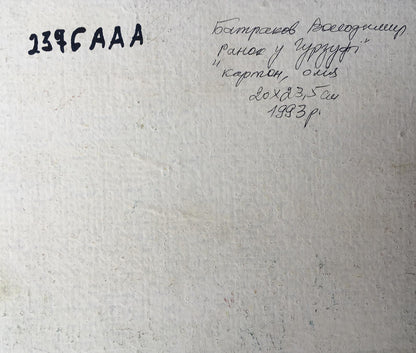 2376 AAA
Батраков Володимир
"Ранок у Гурзуфі"
картон, олія
20x23,5 см
1993 р.